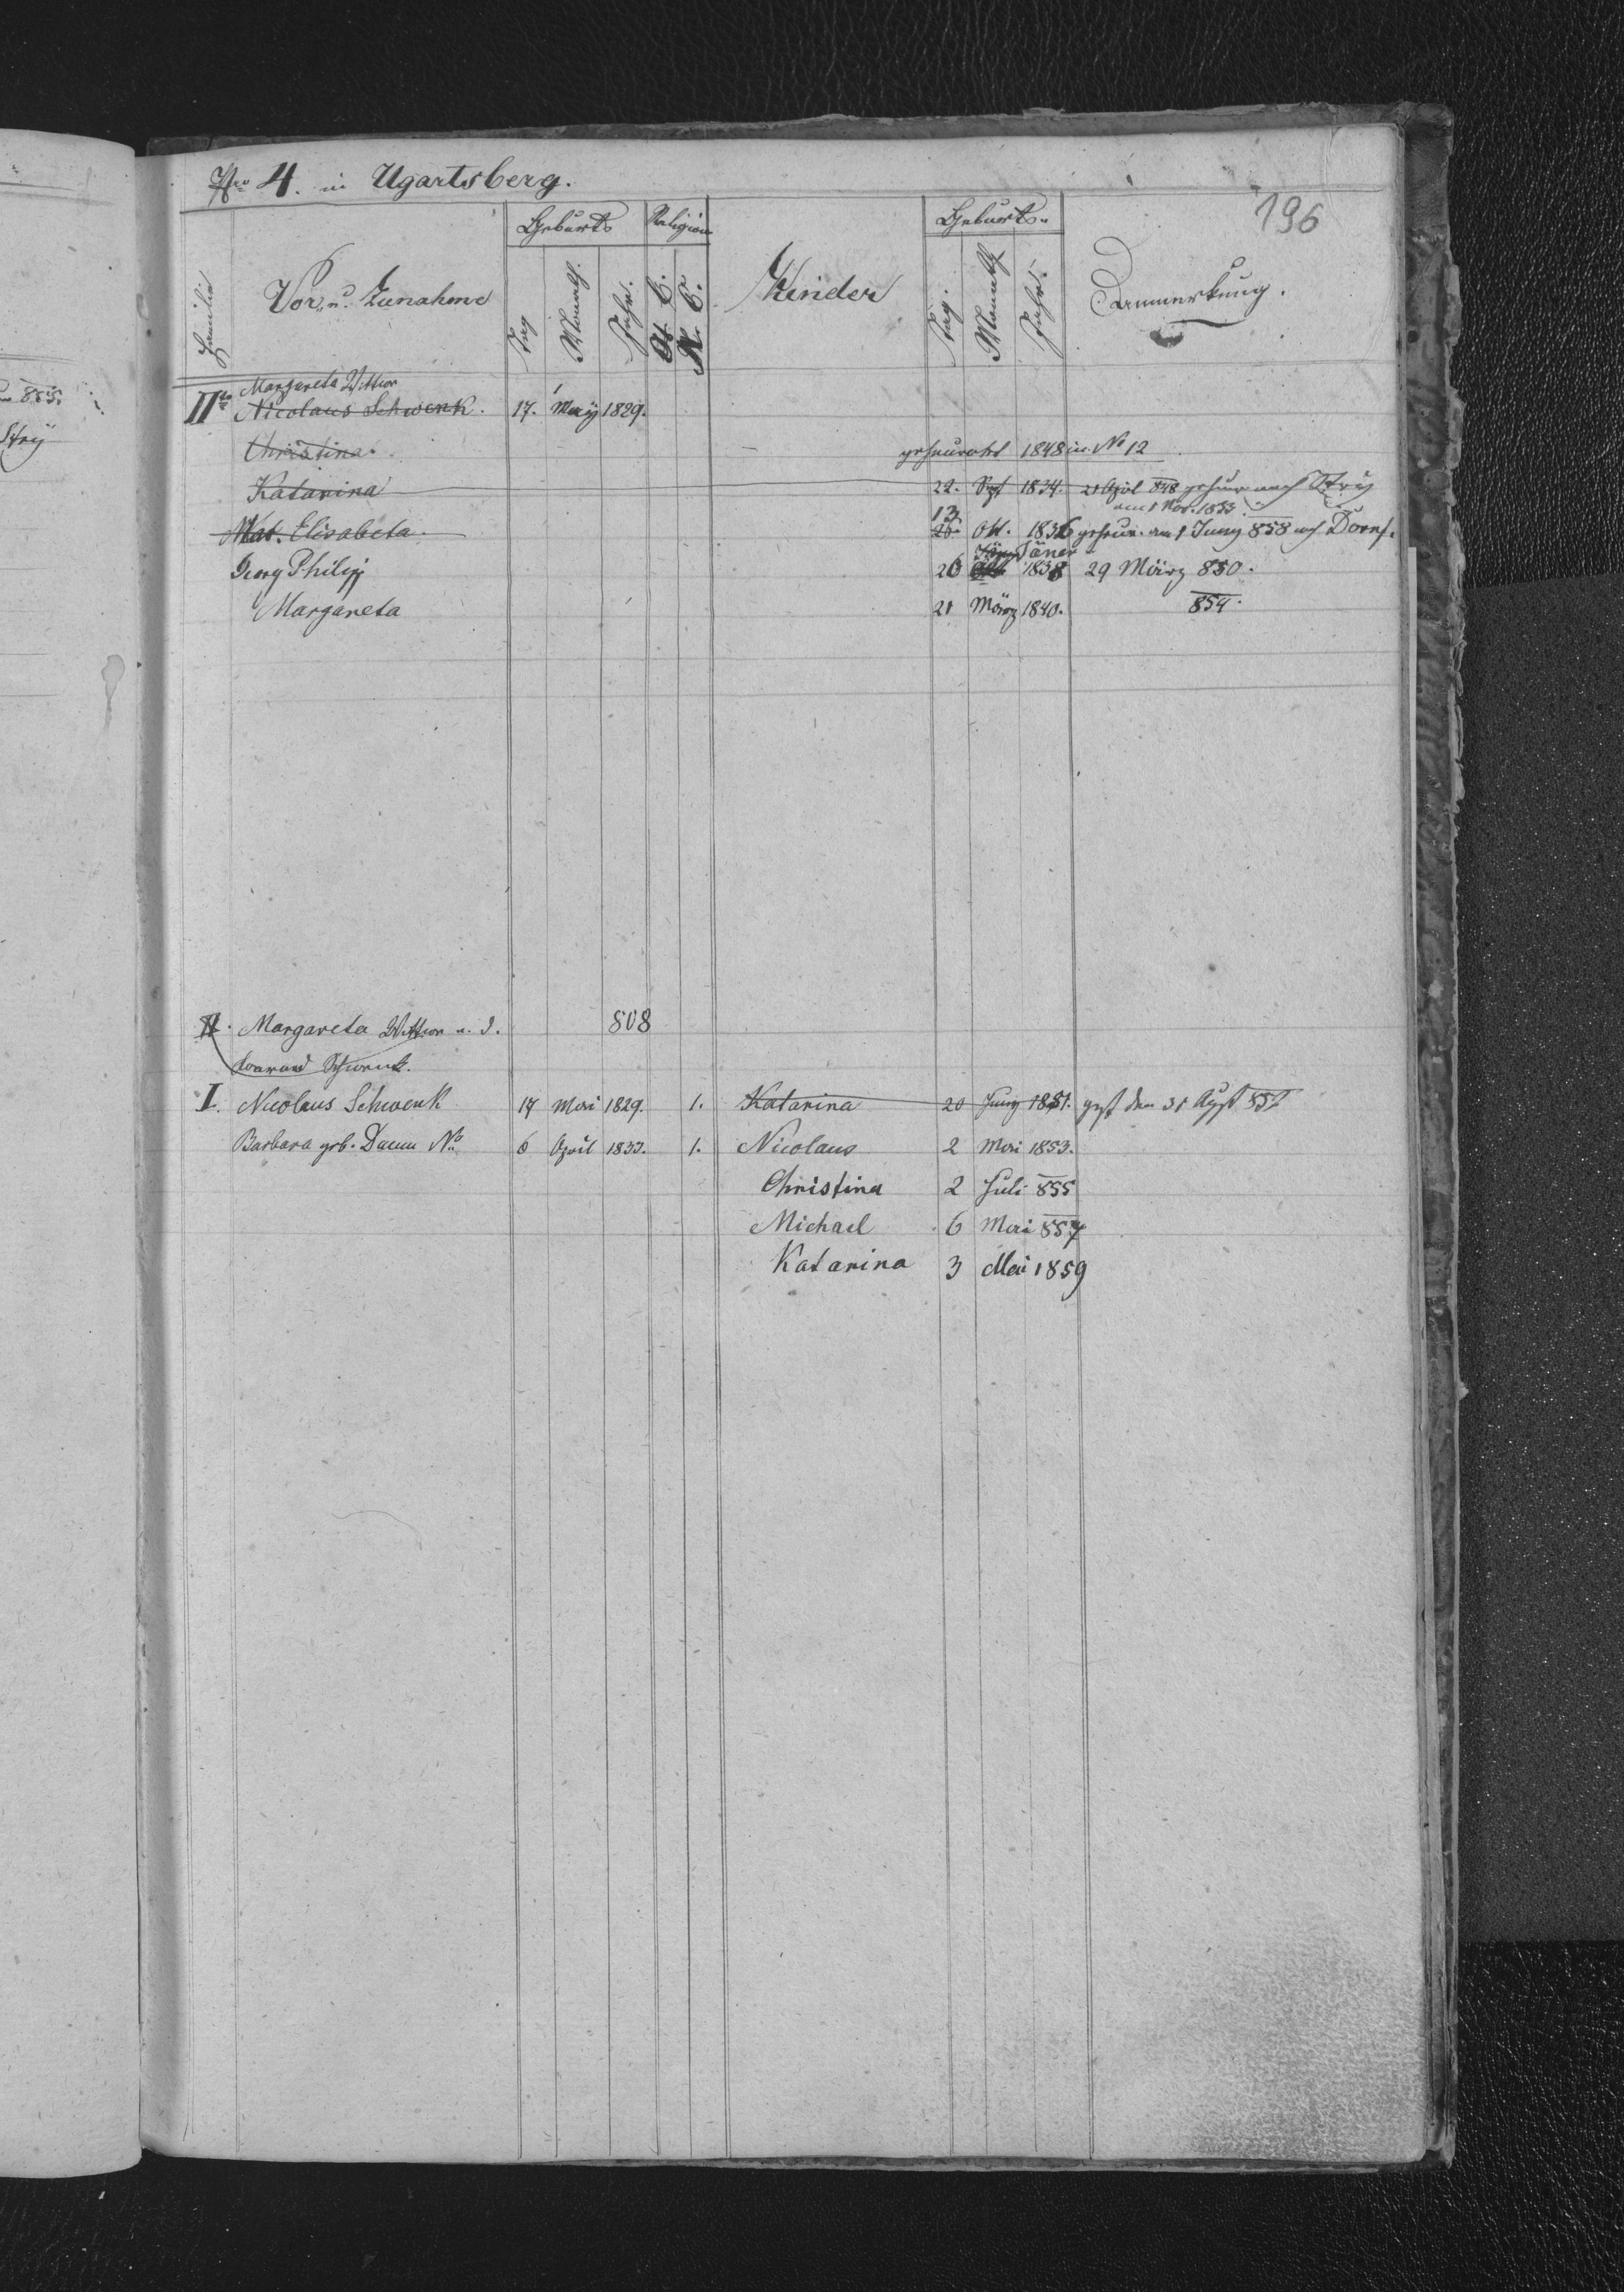 855.
Stry
Nro 4. in Ugartsberg.
196
Familie
Vor u. Zunahme
Geburts
Tag
Monath.
Jahr.
Religion
A. C.
H. C.
Kinder
Geburts
Tag.
Monath
Jahr.
Anmerkung.
Margareta Wittwe
II Nicolaus Schwenk. 17. May 1829.
Christina. geheurathet 1848 in No 12
Katarina 22. Sept 1834. 21 April 848 geheur nach Stry
am 1 Nov. 1853.
13
Mar. Elisabeta. 20 Okt. 1836 geheur. am 1 Juny 858 nach Dornf.
Jäner
Georg Philipp 26 1838 29 März 850.
Margareta 21 März 1840. 854.
II. Margareta Wittwe n. J. 808
Conrad Schwenk.
I. Nicolaus Schwenk 17 Mai 1829. 1. Katarina 20 Juny 1851. gest den 31 Augst 857
Barbara geb. Daum No 6 April 1833. 1. Nicolaus 2 Mai 1853.
Christina 2 Juli 855
Michael 6 Mai 857
Katarina 3 Mai 1859